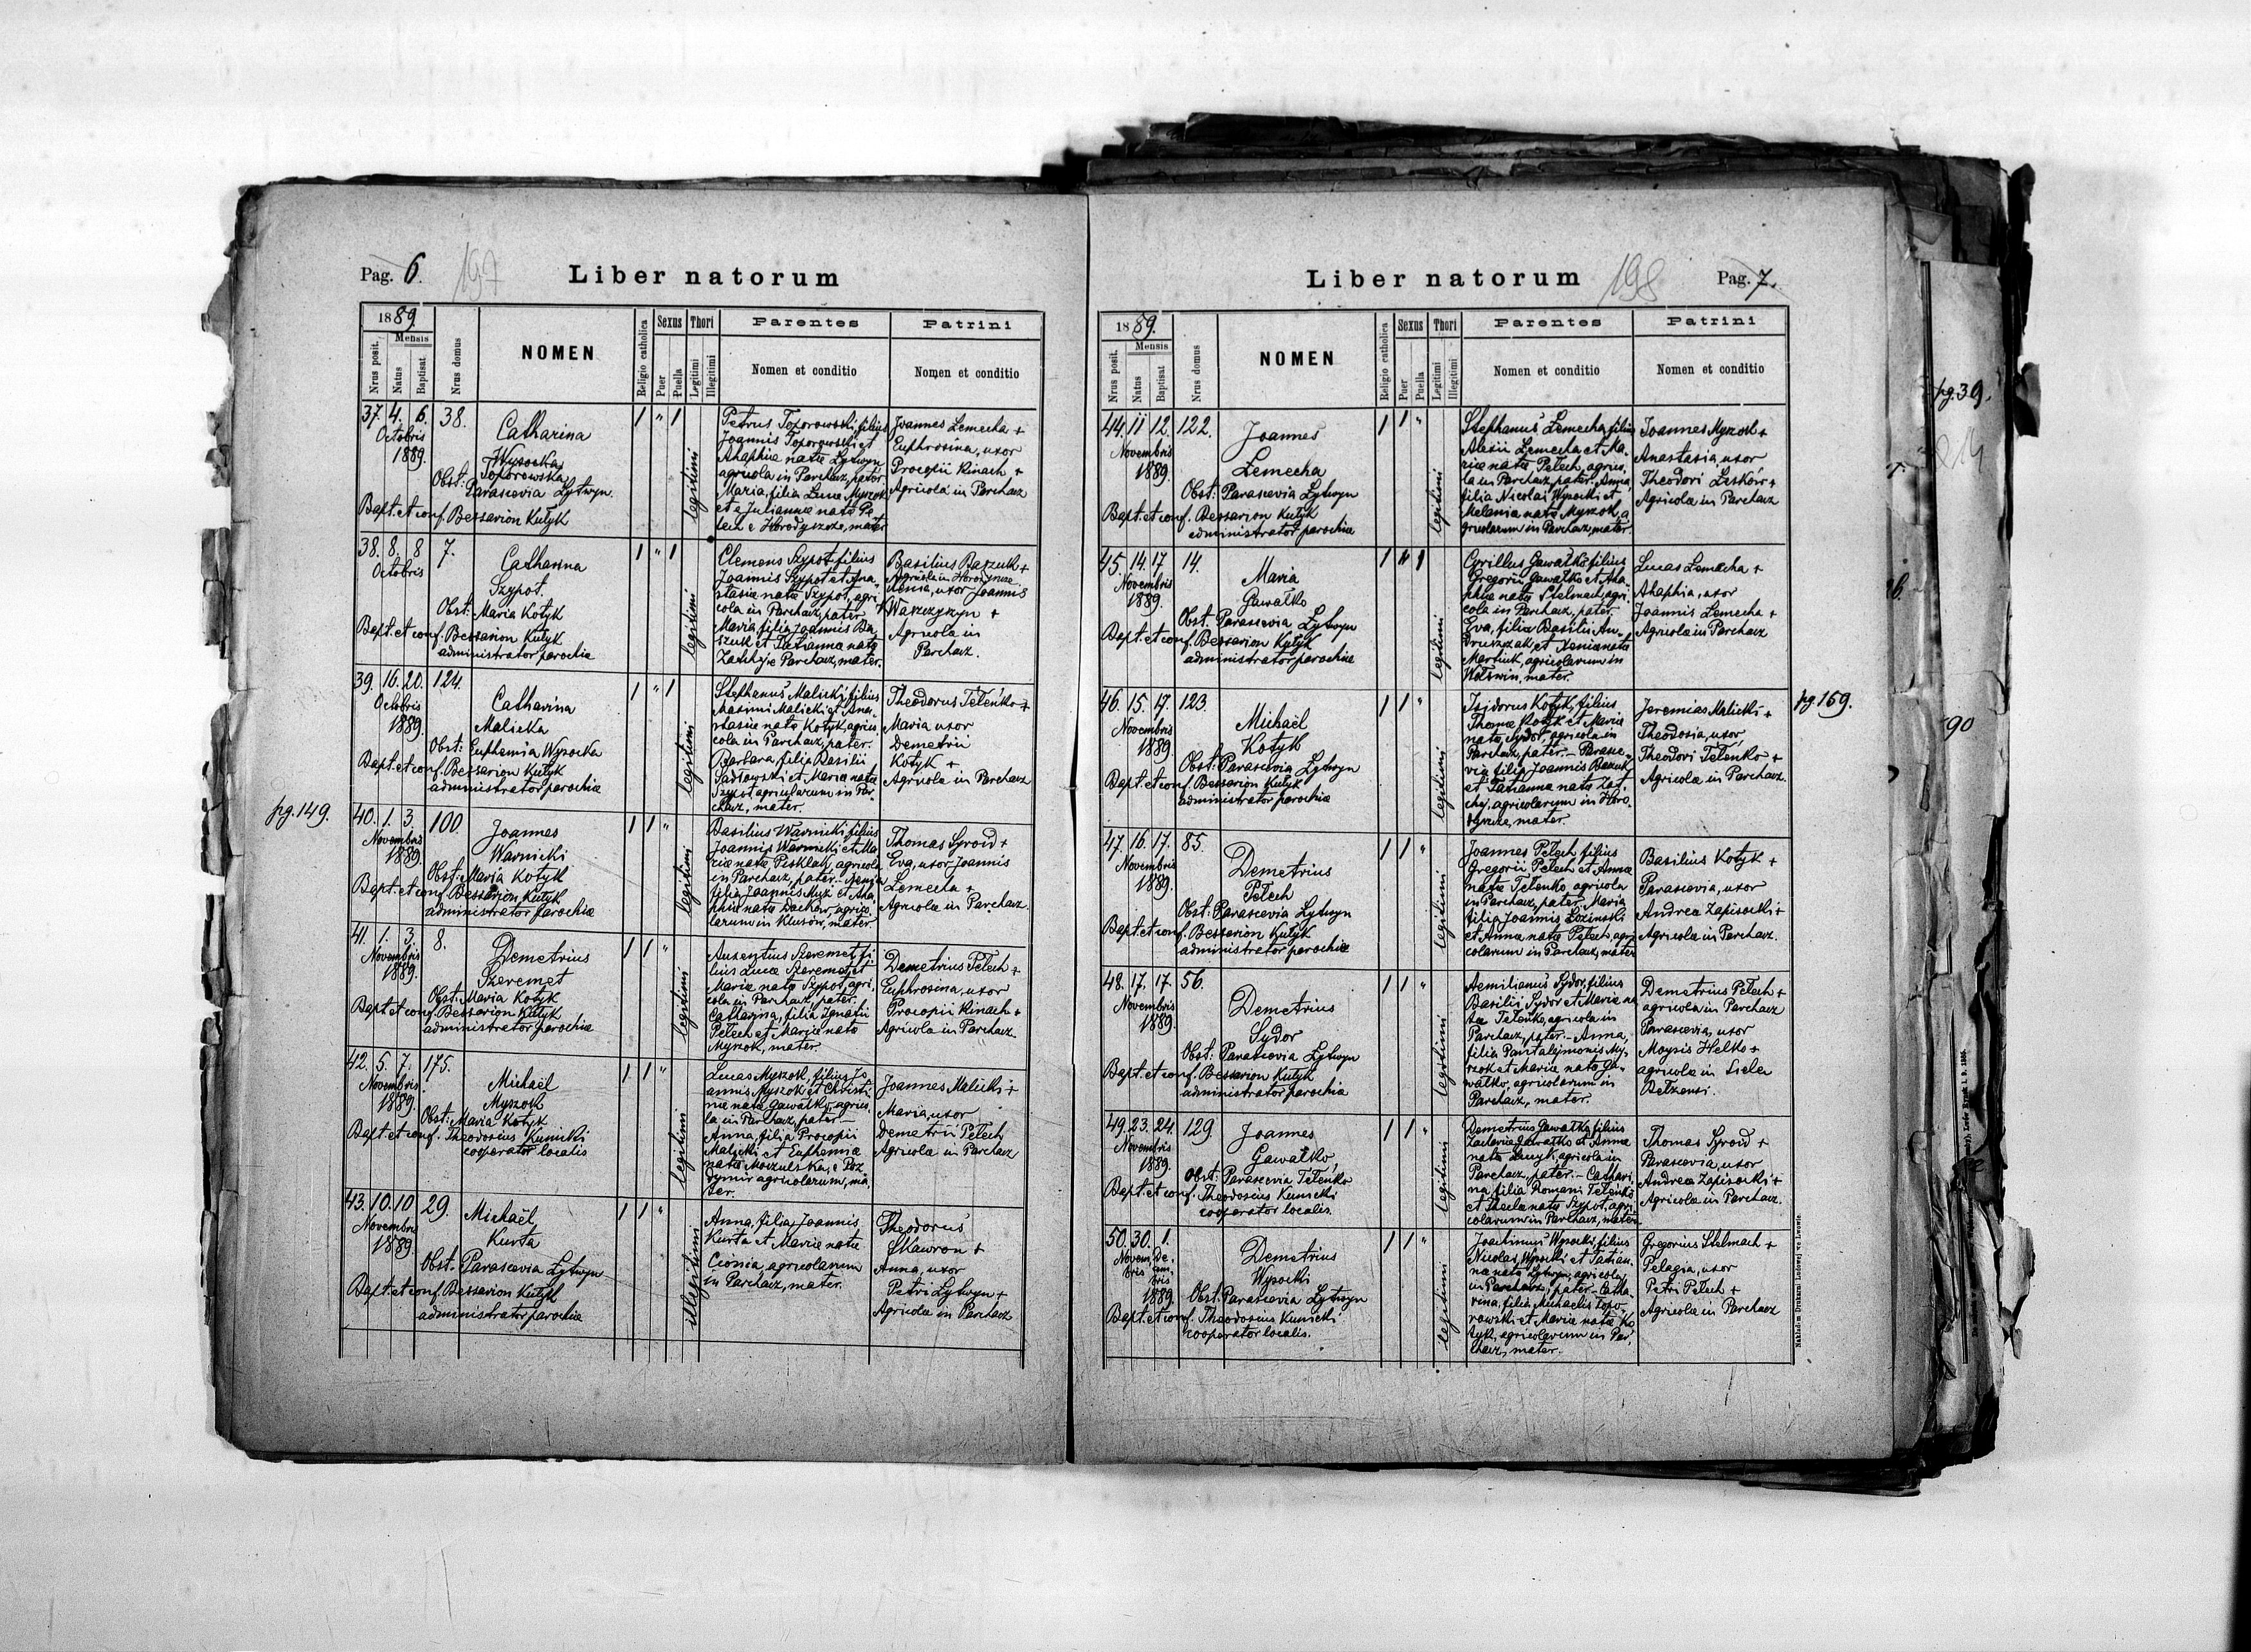 Pag. 6.
197
Liber natorum
1889.
Mensis
Nrus posit.
Natus
Baptisat
Nrus domus
NOMEN
Religio catholica
Sexus
Puer
Puella
Thori
Legitimi
Illegitimi
Parentes
Nomen et conditio
Patrini
Nomen et conditio
37. 4. 6. 38.
Octobris
1889.
Catharina
Wysocka
Toporowska
Obst: Parascevia Lytwyn.
Bapt. et conf. Bessarion Kutyk
1 " 1
legitimi
Petrus Toporowski, filius
Joannis Toporowski et
Ahaphiæ natæ Lytwyn
agricola in Parchacz, pater
Maria, filia Lucæ Myszok
et Juliannæ natæ Pe
tech e Horodyszcze, mater
Joannes Lemecha +
Euphrosina, uxor
Procopii Kinach +
Agricolæ in Parchacz
38. 8. 8 7.
Octobris
Catharina
Szypot.
Obst: Maria Kotyk
Bapt. et conf. Bessarion Kutyk
administrator parochiæ
1 " 1
legitimi
Clemens Szypot filius
Joannis Szypot et Ana-
stasiæ natæ Szypot, agri
cola in Parchacz, pater
Maria, filia Joannis Ba
szuk et Tatiannæ natæ
Zatchij e Parchacz, mater.
Basilius Baszuk +
Agricola in Horodyszcze
Xenia, uxor Joannis
Waszczyszyn +
Agricola in
Parchacz.
39. 16. 20. 124.
Octobris
1889.
Catharina
Malicka
Obst: Euphemia Wysocka
Bapt. et conf. Bessarion Kutyk
administrator parochiæ
1 " 1
legitimi
Stephanus Malicki, filius
Maximi Malicki et Ana-
stasiæ natæ Kotyk, agrico
cola in Parchacz, pater.
Barbara, filia Basilii
Sadlowski et Mariæ natæ
Szypot agricolarum in Par-
chacz, mater.
Theodorus Telenko +
Maria uxor
Demetrii
Kotyk +
Agricolæ in Parchacz
pg. 149.
40. 1. 3. 100.
Novembris
1889.
Joannes
Warnicki
Obst: Maria Kotyk
Bapt. et conf. Bessarion Kutyk
administrator parochiæ
1 1 "
legitimi
Basilius Warnicki filius
Joannis Warnicki et Ma
riæ natæ Pesklak, agricola
in Parchacz, pater. Xenia
filia Joannis Muzi et Aha-
phiæ natæ Dackow, agrico
larum in Klusów, mater.
Thomas Syroid +
Eva, uxor Joannis
Lemecha +
Agricolæ in Parchacz.
41. 1. 3. 8.
Novembris
1889.
Demetrius
Szeremet
Obst: Maria Kotyk
Bapt et conf. Bessarion Kutyk
administrator parochiæ
1 1 "
legitimi
Auxentius Szeremet fi
lius Lucæ Szeremet, et
Mariæ natæ Szypot, agri-
cola in Parchacz, pater.
Catharina, filia Ignatii
Petech et Mariæ natæ
Myszok, mater.
Demetrius Petech +
Euphrosina, uxor
Procopii Kinach +
Agricolæ in Parchacz
42. 5. 7. 175.
Novembris
1889.
Michaël
Myszok
Obst: Maria Kotyk
Bapt. et conf. Theodosius Kunicki
cooperator localis
1 1 "
legitimi
Lucas Myszok, filius Jo
annis Myszok et Christi
næ natæ Gawałko, agrico
la in Parchacz, pater —
Anna, filia Procopii
Malicki et Euphemiæ
natæ Moczulska, e Poz-
dymir agricolarum, ma
ter.
Joannes Malicki +
Maria, uxor
Demetrii Petech
Agricolæ in Parchacz
43. 10. 10 29.
Novembris
1889.
Michaël
Kurta
Obst: Parascevia Lytwyn
Bapt. et conf. Bessarion Kutyk
administrator parochiæ
1 1 "
illegitimi
Anna, filia Joannis
Kurta et Mariæ natæ
Ciosnia, agricolarum
in Parchacz, mater.
Theodorus
Skawron +
Anna, uxor
Petri Lytwyn +
Agricolæ in Parchacz
Liber natorum
198
Pag. 7.
1889.
Mensis
Nrus posit.
Natus
Baptisat
Nrus domus
NOMEN
Religio catholica
Sexus
Puer
Puella
Thori
Legitimi
Illegitimi
Parentes
Nomen et conditio
Patrini
Nomen et conditio
44. 11 12. 122.
Novembris
1889.
Joannes
Lemecha
Obst: Parascevia Lytwyn
Bapt. et conf. Bessarion Kutyk
administrator parochiæ
1 1 "
legitimi
Stephanus Lemecha, filius
Alexii Lemecha et Ma-
riæ natæ Petech, agrico-
la in Parchacz, pater. Anna,
filia Nicolai Wysocki et
Melania natæ Myszok, a
gricolarum in Parchacz, mater.
Joannes Myszok +
Anastasia, uxor
Theodori Leśków +
Agricolæ in Parchacz
45. 14. 17 14.
Novembris
1889.
Maria
Gawałko
Obst: Parascevia Lytwyn
Bapt. et conf. Bessarion Kutyk
administrator parochiæ
1 " 1
legitimi
Cyrillus Gawałko filius
Gregorii Gawałko et Aha-
phiæ natæ Stelmach, agri-
cola in Parchacz, pater.
Eva, filia Basilii An-
druszczak et Xeniæ natæ
Martiuk, agricolarum in
Wolswin, mater.
Lucas Lemecha +
Ahaphia, uxor
Joannis Lemecha +
Agricolæ in Parchacz
46. 15. 17. 123.
Novembris
1889.
Michaël
Kotyk
Obst: Parascevia Lytwyn
Bapt. et conf. Bessarion Kutyk
administrator parochiæ
1 1 "
legitimi
Isidorus Kotyk, filius
Thomæ Kotyk et Mariæ
natæ Sydor, agricola in
Parchacz, pater. — Parasce-
via filia Joannis Baszuk
et Tatiannæ natæ Zat-
chij, agricolarum in Horo-
dyszcze, mater.
Jeremias Malicki +
Theodosia, uxor
Theodori Telenko +
Agricolæ in Parchacz.
pg. 159.
47. 16. 17. 85.
Novembris
1889.
Demetrius
Petech
Obst: Parascevia Lytwyn
Bapt. et conf. Bessarion Kutyk
administrator parochiæ
1 1 "
legitimi
Joannes Petech, filius
Gregorii Petech et Annæ
natæ Telenko, agricola
in Parchacz, pater. Maria
filia Joannis Łozinski
et Annæ natæ Petech, agri
colarum in Parchacz, mater
Basilius Kotyk +
Parascevia, uxor
Andreæ Zapisocki +
Agricolæ in Parchacz.
48. 17. 17. 56.
Novembris
1889.
Demetrius
Sydor
Obst: Parascevia Lytwyn
Bapt. et conf. Bessarion Kutyk
administrator parochiæ
1 1 "
legitimi
Aemilianus Sydor, filius
Basilii Sydor et Mariæ na
tæ Telenko, agricola in
Parchacz, pater. — Anna,
filia Pantalejmonis My-
szok et Mariæ natæ Ga-
wałko, agricolarum in
Parchacz, mater.
Demetrius Petech +
agricola in Parchacz
Parascevia, uxor
Moysis Helko +
agricolæ in Sielec
Bełzensi.
49. 23. 24. 129.
Novembris
1889.
Joannes
Gawałko
Obst: Parascevia Telenko
Bapt. et conf. Theodosius Kunicki
cooperator localis.
1 1 "
legitimi
Demetrius Gawałko, filius
Zachariæ Gawałko et Annæ
natæ Łucyk, agricola in
Parchacz, pater. — Cathari
na, filia Romani Telenko
et Theclæ natæ Szypot, agri
colarum in Parchacz, mater.
Thomas Syroid +
Parascevia, uxor
Andreæ Zapisocki +
Agricolæ in Parchacz.
50. 30. 1.
Novem De-
bris cem-
bris
1889.
Demetrius
Wysocki
Obst. Parascevia Lytwyn
Bapt. et conf. Theodosius Kunicki
cooperator localis.
1 1 "
legitimi
Joachimus Wysocki, filius
Nicolai Wysocki et Tatian-
næ natæ Lytwyn, agricola
in Parchacz, pater — Catha-
rina, filia Michaelis Topo-
rowski et Mariæ natæ Ko
tyk, agricolarum in Par-
chacz, mater.
Gregorius Stelmach +
Pelagia, uxor
Petri Petech +
Agricolæ in Parchacz
Nakładem Drukarni Ludowej we Lwowie.
pg. 39.
90